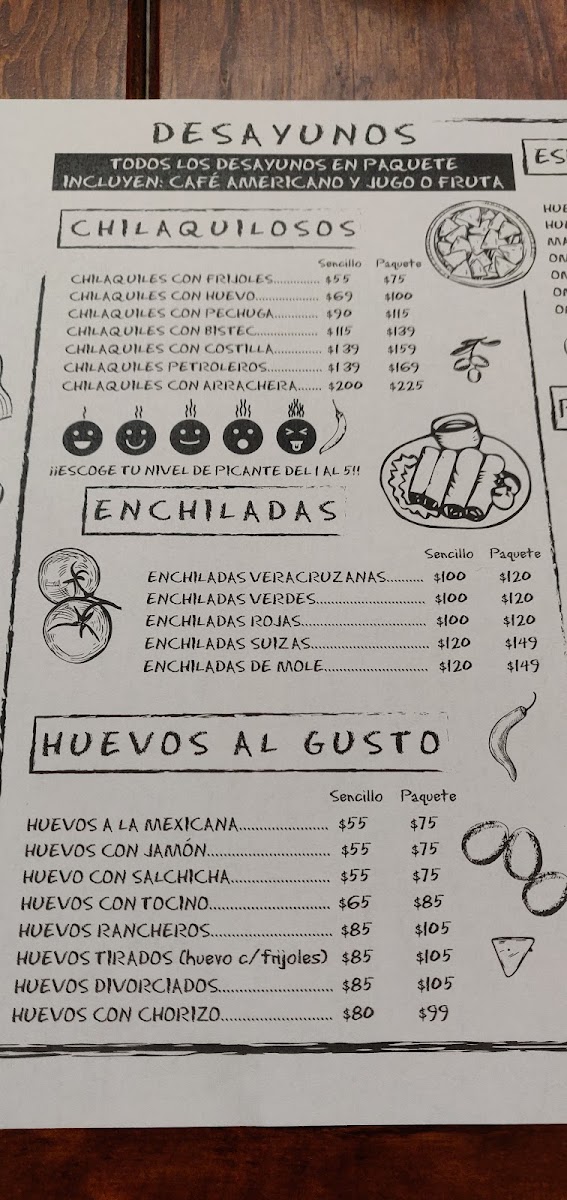 DESAYUNOS
TODOS LOS DESAYUNOS EN PAQUETE
INCLUYEN: CAFÉ AMERICANO Y JUGO O FRUTA
CHILAQUILOSOS
Sencillo Paquete
CHILAQUILES CON FRIJOLES............. $55 $75
CHILAQUILES CON HUEVO................. $69 $100
CHILAQUILES CON PECHUGA............. $90 $115
CHILAQUILES CON BISTEC................. $115 $139
CHILAQUILES CON COSTILLA............. $139 $159
CHILAQUILES PETROLEROS............... $139 $169
CHILAQUILES CON ARRACHERA....... $200 $225
¡¡ESCOGE TU NIVEL DE PICANTE DEL 1 AL 5!!
ENCHILADAS
Sencillo Paquete
ENCHILADAS VERACRUZANAS.......... $100 $120
ENCHILADAS VERDES.............................. $100 $120
ENCHILADAS ROJAS.................................. $100 $120
ENCHILADAS SUIZAS................................ $120 $149
ENCHILADAS DE MOLE............................ $120 $149
HUEVOS AL GUSTO
Sencillo Paquete
HUEVOS A LA MEXICANA........................ $55 $75
HUEVOS CON JAMÓN................................ $55 $75
HUEVO CON SALCHICHA.......................... $55 $75
HUEVOS CON TOCINO............................... $65 $85
HUEVOS RANCHEROS............................... $85 $105
HUEVOS TIRADOS (huevo c/frijoles) $85 $105
HUEVOS DIVORCIADOS.............................. $85 $105
HUEVOS CON CHORIZO............................. $80 $99